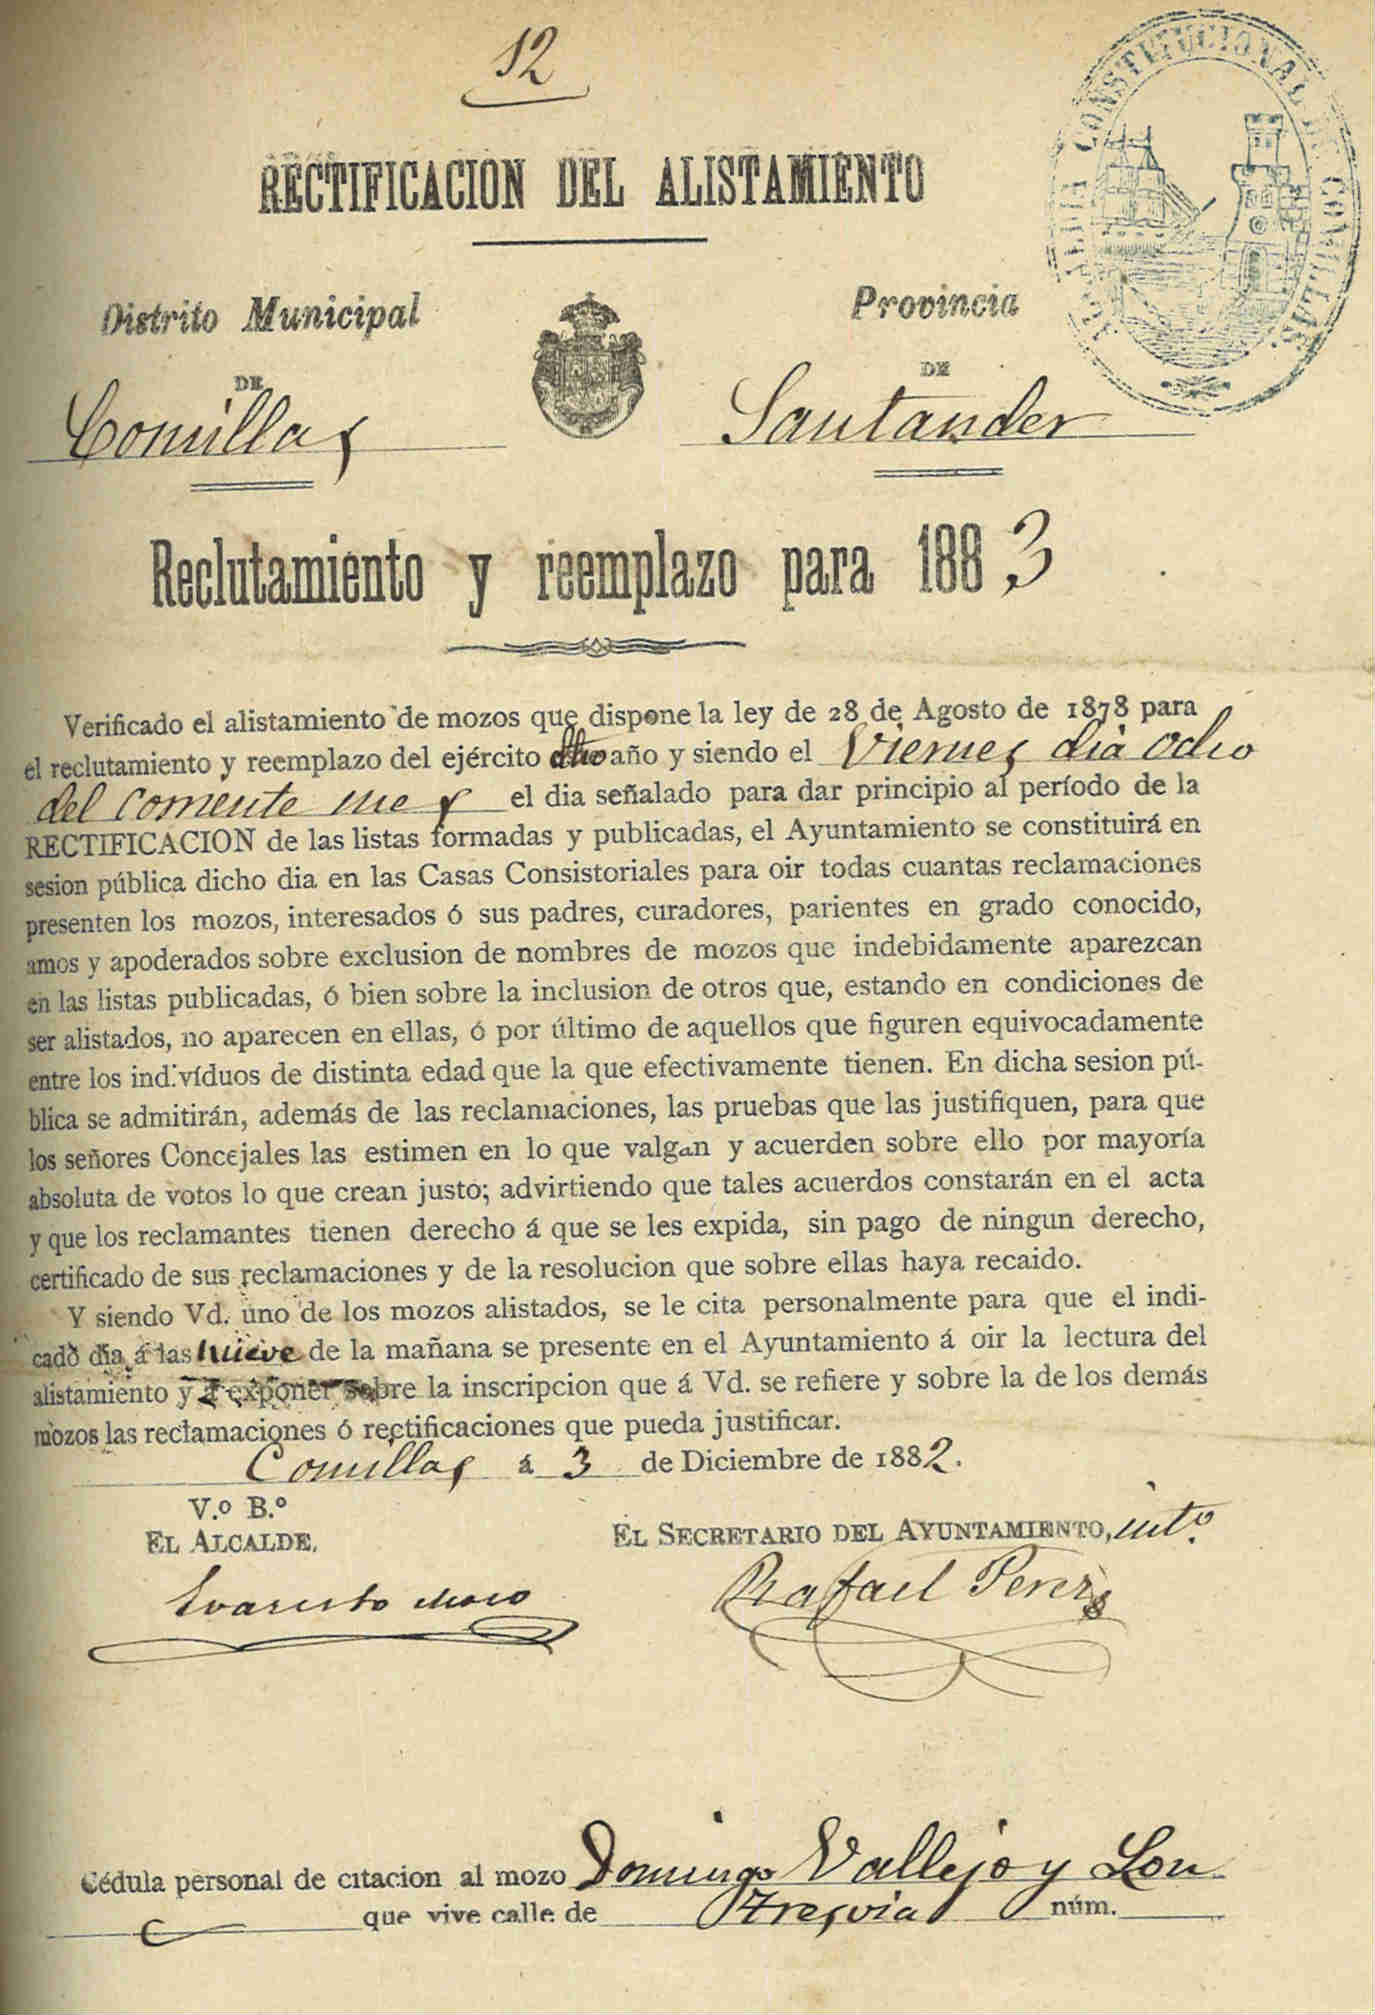 12
ALCALDIA CONSTITUCIONAL DE COMILLAS.
RECTIFICACION DEL ALISTAMIENTO
Distrito Municipal
Provincia
DE
DE
Comillas
Santander
Reclutamiento y reemplazo para 1883
Verificado el alistamiento de mozos que dispone la ley de 28 de Agosto de 1878 para
el reclutamiento y reemplazo del ejército dho año y siendo el Viernes dia ocho
del corriente mes el dia señalado para dar principio al período de la
RECTIFICACION de las listas formadas y publicadas, el Ayuntamiento se constituirá en
sesion pública dicho dia en las Casas Consistoriales para oir todas cuantas reclamaciones
presenten los mozos, interesados ó sus padres, curadores, parientes en grado conocido,
amos y apoderados sobre exclusion de nombres de mozos que indebidamente aparezcan
en las listas publicadas, ó bien sobre la inclusion de otros que, estando en condiciones de
ser alistados, no aparecen en ellas, ó por último de aquellos que figuren equivocadamente
entre los indivíduos de distinta edad que la que efectivamente tienen. En dicha sesion pú-
blica se admitirán, además de las reclamaciones, las pruebas que las justifiquen, para que
los señores Concejales las estimen en lo que valgan y acuerden sobre ello por mayoría
absoluta de votos lo que crean justo; advirtiendo que tales acuerdos constarán en el acta
y que los reclamantes tienen derecho á que se les expida, sin pago de ningun derecho,
certificado de sus reclamaciones y de la resolucion que sobre ellas haya recaido.
Y siendo Vd. uno de los mozos alistados, se le cita personalmente para que el indi-
cado dia á las nueve de la mañana se presente en el Ayuntamiento á oir la lectura del
alistamiento y á exponer sobre la inscripcion que á Vd. se refiere y sobre la de los demás
mozos las reclamaciones ó rectificaciones que pueda justificar.
Comillas á 3 de Diciembre de 1882.
V.º B.º
EL ALCALDE,
EL SECRETARIO DEL AYUNTAMIENTO, intº.
Evaristo
Rafael Perez
Cédula personal de citacion al mozo Domingo Vallejo y
que vive calle de Tresvia núm.